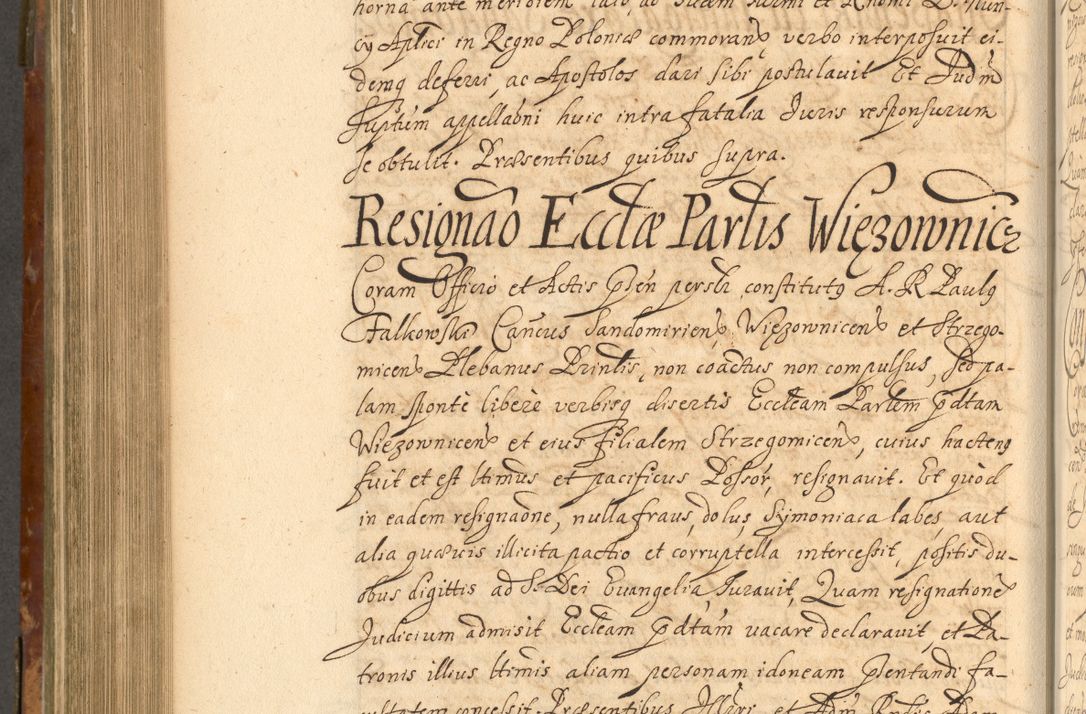 horna ante meridiem
cÿ Aplici in Regno Poloniæ commoranˢ verbo interposuit ei-
demq deferri, ac Apostolos dari sibi postulavit Et Judm̄
suptum appellaōni huic intra fatalia Juris responsurum
se obtulit. Præsentibus quibus supra.
Resignaō Ecclæ Parlis Więzownicz
Coram Officio et Actis Pn̄sn̄ persl̄r constitutg A. R. Paulg
Falkowski Can̄cus Sandomirienˢ, Więzownicenˢ et Strzego-
micenˢ Plebanus Prin̄lis, non coactus non compulsus, sed pa-
lam spontè liberè verbisq disertis Eccleam Parlem pdtam
Więzownicenˢ et eius filialem Strzegomicenˢ, cuius hacteng
fuit et est ltimus et pacificus Possor, resignavit. Et quod
in eadem resignaōne, nulla fraus, dolus, Symoniaca labes, aut
alia quævis illicita pactio et corruptella intercessit, positis du-
obus digittis ad S. Dei Euangelia Juravit, Quam resignationē
Judicium admisit Eccleam pdtam vacare declaravit, et Pa-
tronis illius ltimis aliam personam idoneam pn̄tandi fa-
cultatem concessit. Præsentibus Illri et Adm̄ Rndis Adam